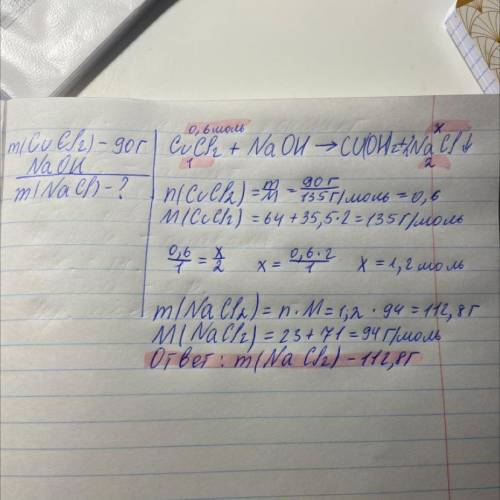 m(CuCl2) - 90г
NaOH
m(NaCl) - ?
0,6 моль
x
CuCl2 + NaOH → Cu(OH)2 + NaCl↓
1
2
n(CuCl2) = m/M = 90г/135г/моль = 0,6
M(CuCl2) = 64 + 35,5·2 = 135г/моль
0,6/1 = x/2 x = 0,6·2/1 x = 1,2 моль
m(NaCl2) = n·M = 1,2·94 = 112,8г
M(NaCl2) = 23 + 71 = 94г/моль
Ответ: m(NaCl2) - 112,8г